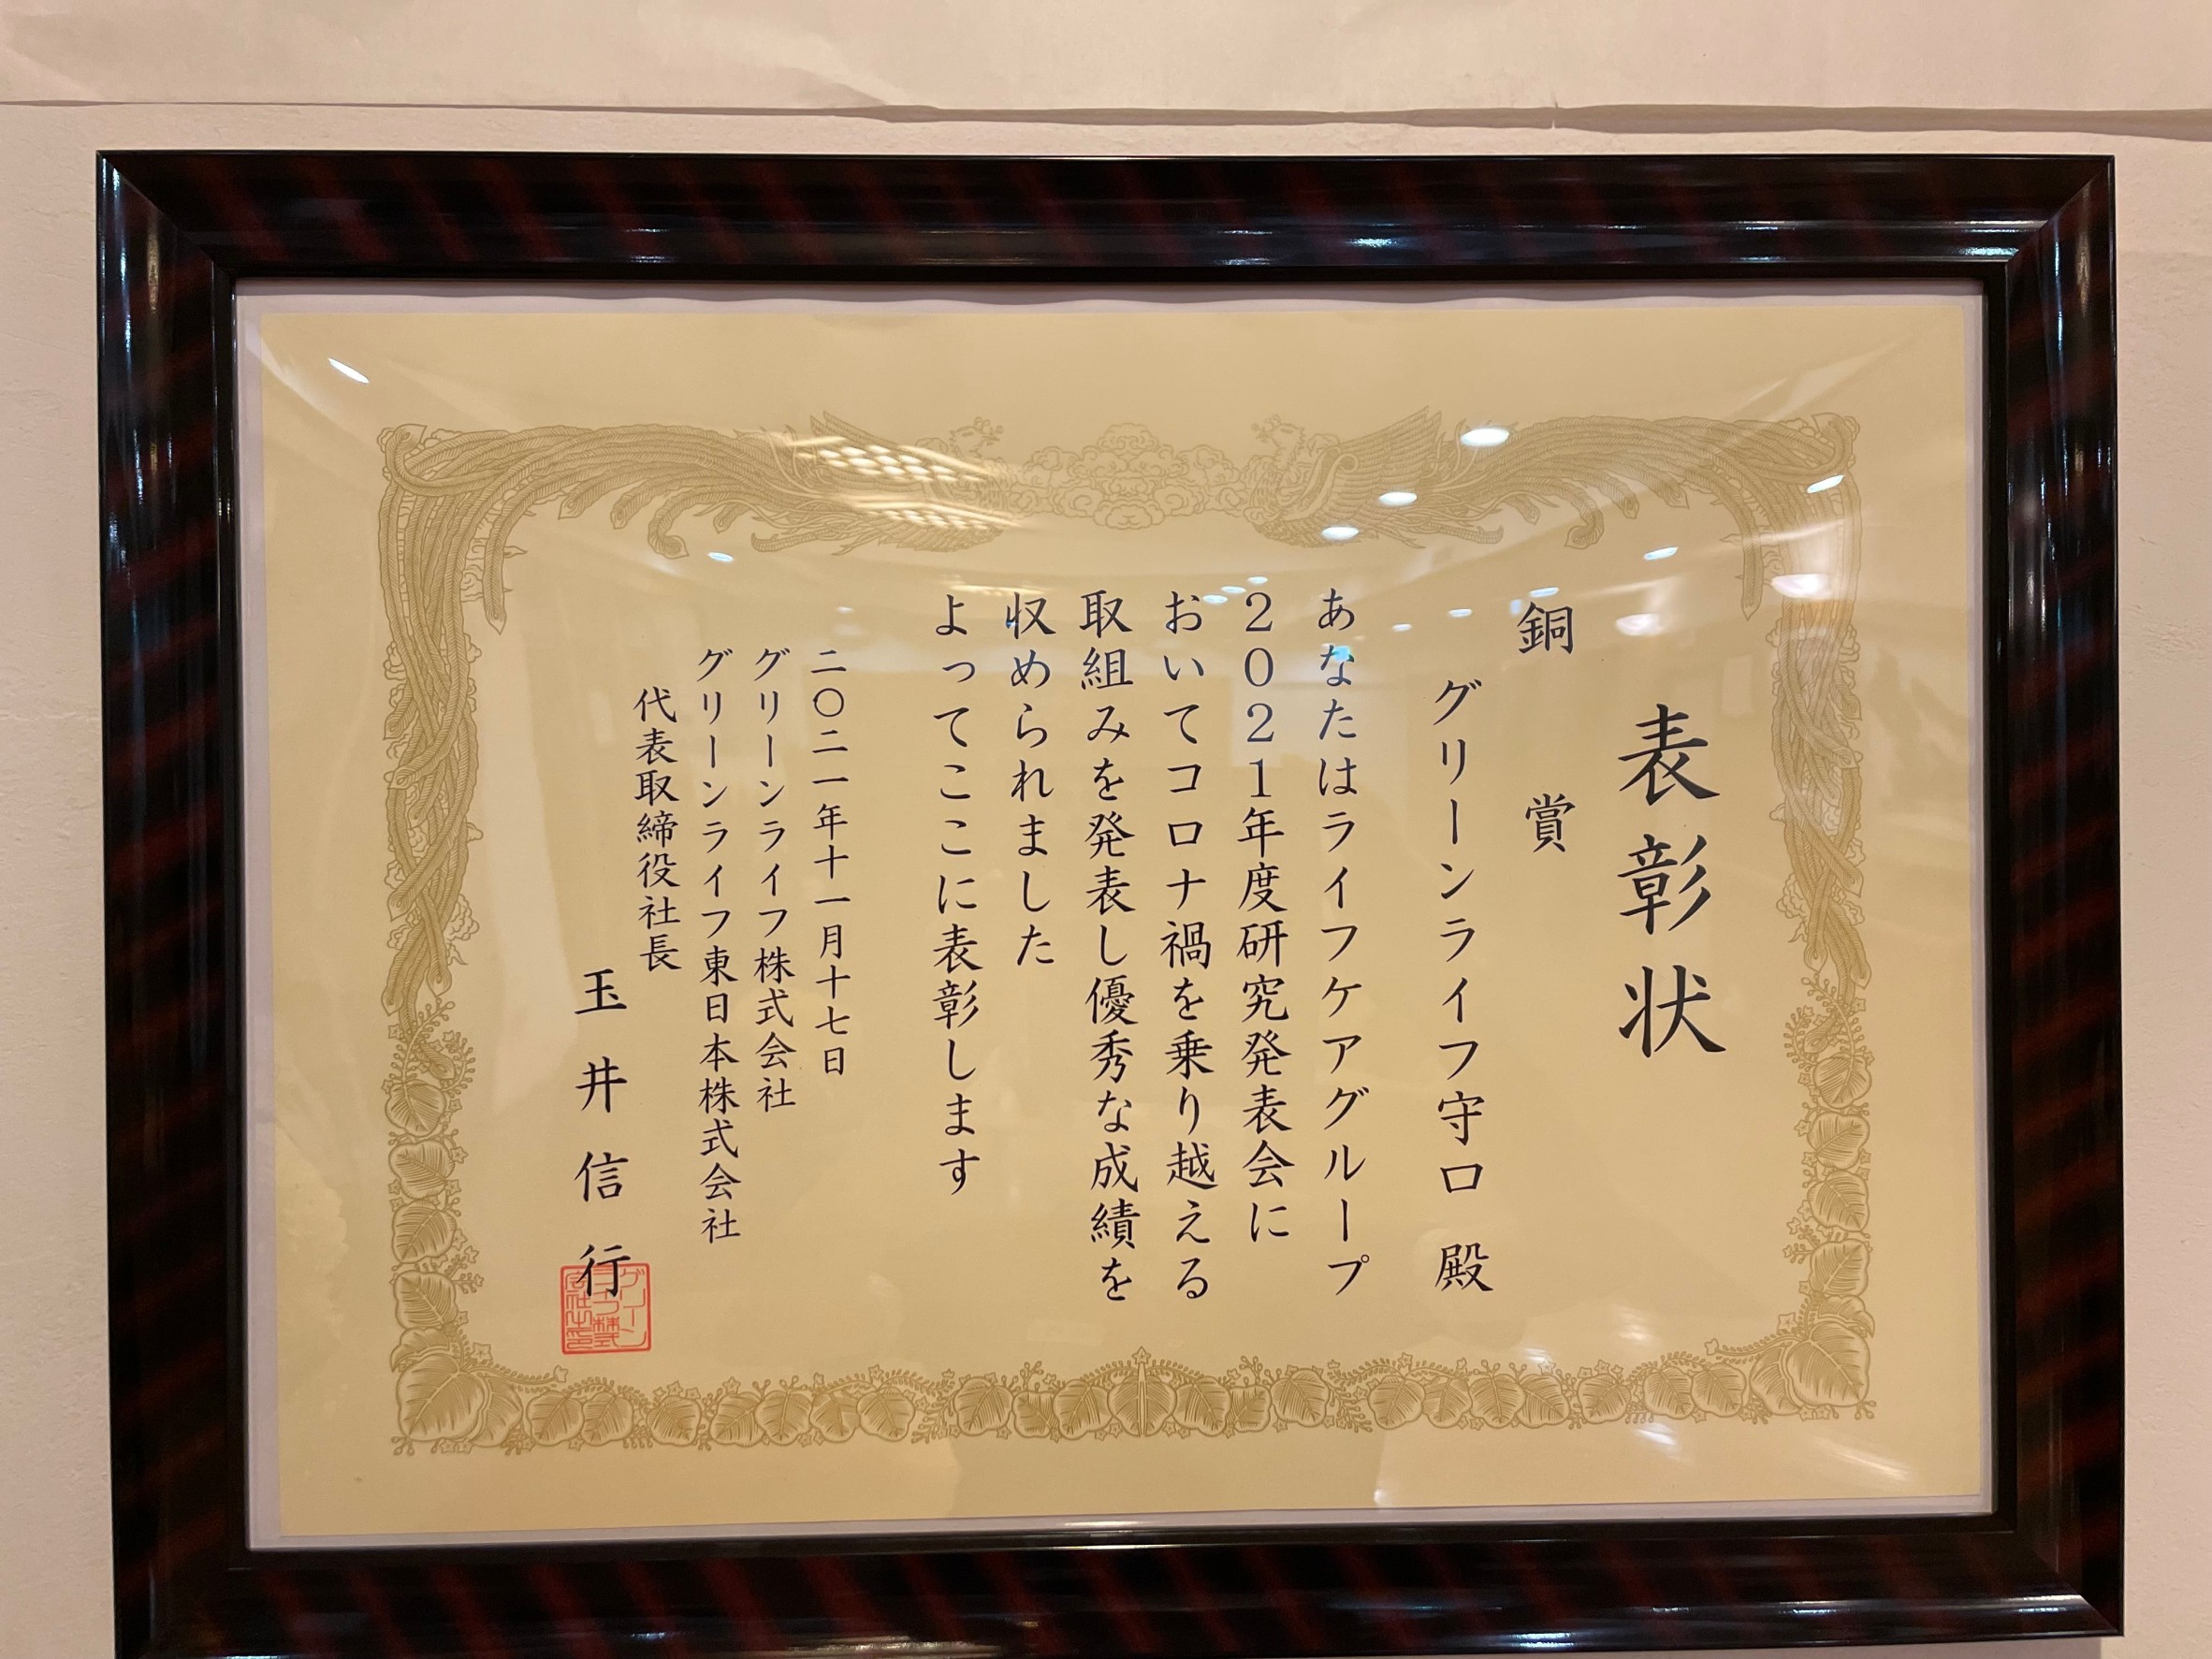 表彰状
銅賞
グリーンライフ守口 殿
あなたはライフケアグループ
2021年度研究発表会に
おいてコロナ禍を乗り越える
取組みを発表し優秀な成績を
収められました
よってここに表彰します
二〇二一年十一月十七日
グリーンライフ株式会社
グリーンライフ東日本株式会社
代表取締役社長
玉井信行